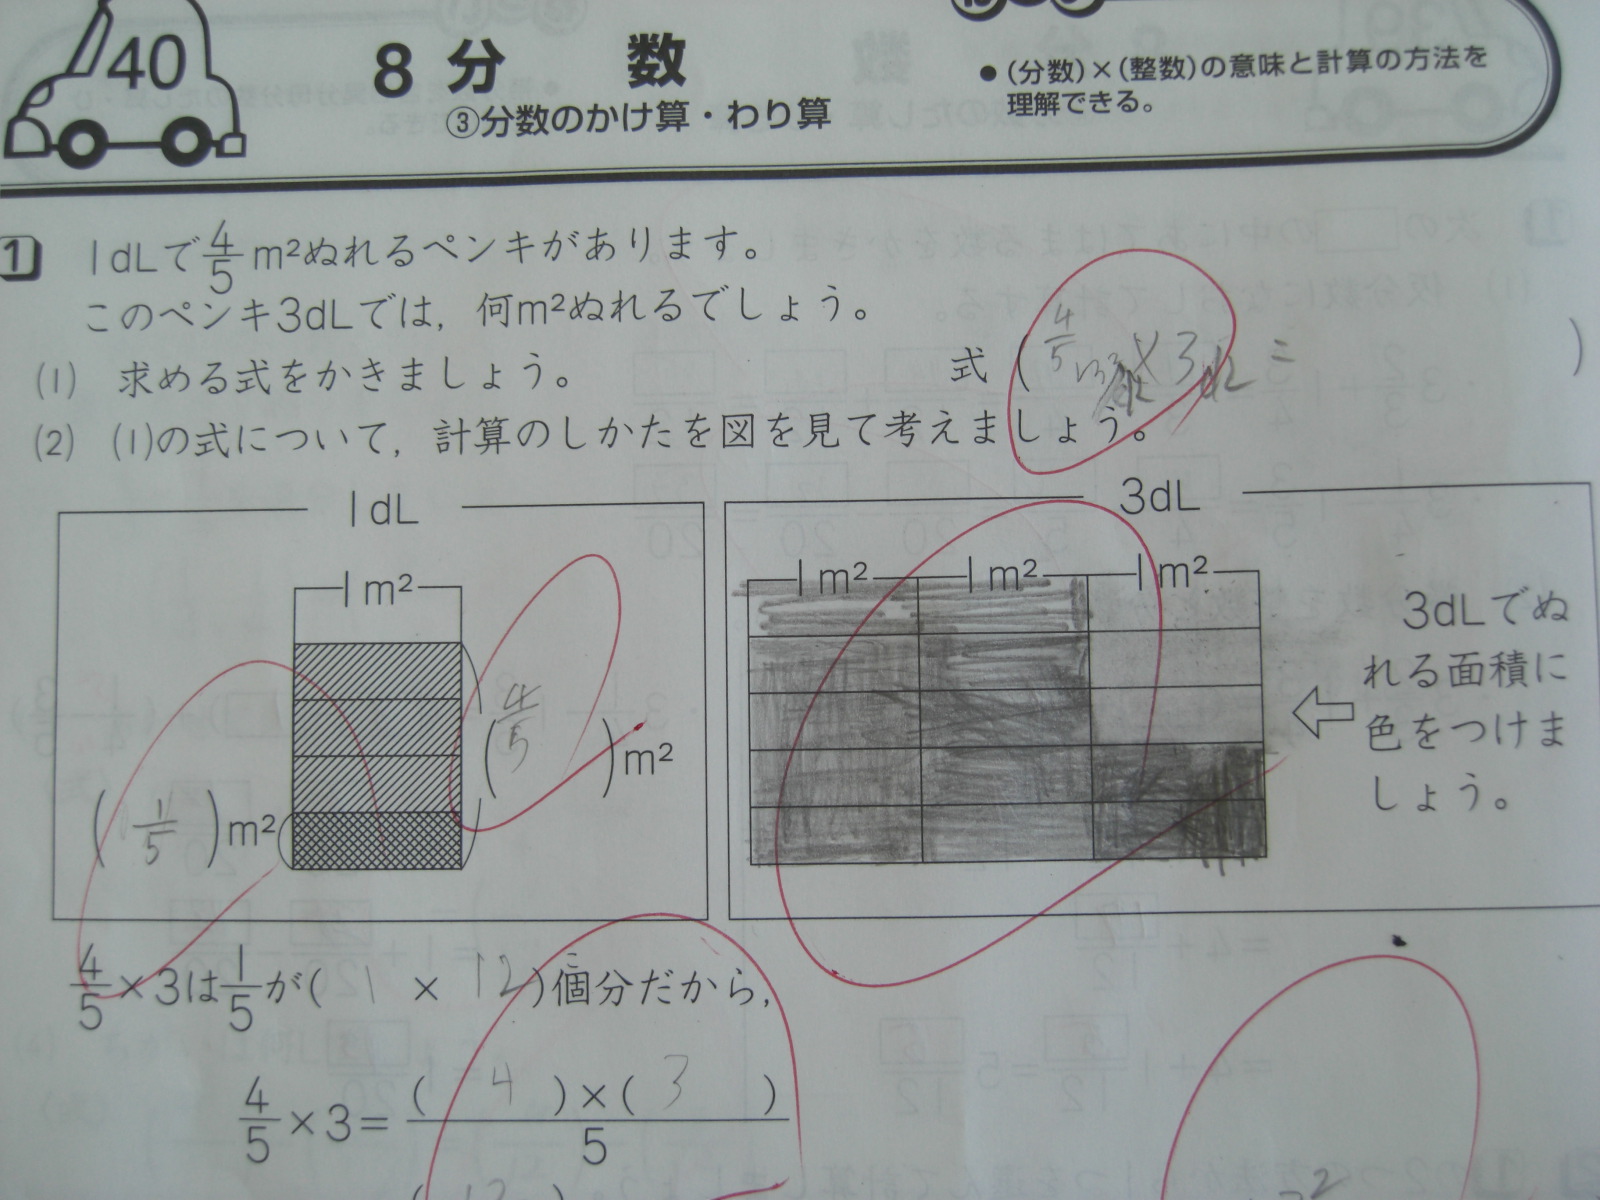 40
8 分 数
③分数のかけ算・わり算
●(分数)×(整数)の意味と計算の方法を
理解できる。
1 1dLで4/5m²ぬれるペンキがあります。
このペンキ3dLでは，何m²ぬれるでしょう。
(1) 求める式をかきましょう。
式 ( 4/5 × 3 = )
(2) (1)の式について，計算のしかたを図を見て考えましょう。
1dL
1m²
(4/5)m²
(1/5)m²
3dL
1m² 1m² 1m²
3dLでぬ
れる面積に
色をつけま
しょう。
4/5×3は1/5が( 1 × 12 )個分だから，
こ
4/5×3=( 4 )×( 3 )/5
( 12 )